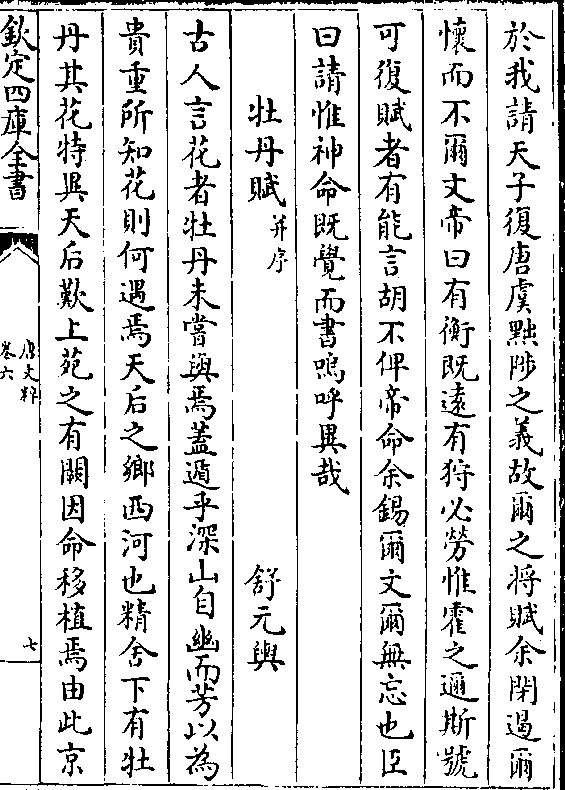 於我請天子復唐虞黜陟之義故爾之將賦余閉遏爾
懷而不爾文帝曰有衡既遠有狩必勞惟霍之邇斯號
可復賦者有能言胡不俾帝命余錫爾文爾無忘也臣
曰請惟神命既覺而書嗚呼異哉
牡丹賦并序
舒元輿
古人言花者牡丹未嘗與焉蓋遁乎深山自幽而芳以為
貴重所知花則何遇焉天后之鄉西河也精舍下有牡
丹其花特異天后歎上苑之有闕因命移植焉由此京
欽定四庫全書
唐文粹
卷六
七